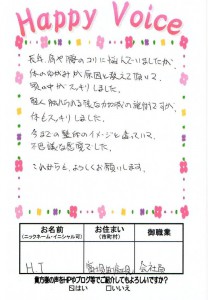 Happy Voice
長年、肩や腰のコリに悩んでいましたが、
体のゆがみが原因と教えて頂いて、
頭の中がスッキリしました。
軽く触れられる程度の力加減の施術ですが、
体もスッキリしました。
今までの整体のイメージと違っていて、
不思議な感覚でした。
これからも、よろしくお願いします。
お名前
(ニックネーム・イニシャル可)
お住まい
(市町村)
御職業
H.T
会社員
貴方様の声をHPやブログ等でご紹介してもよろしいですか?
☑はい □いいえ